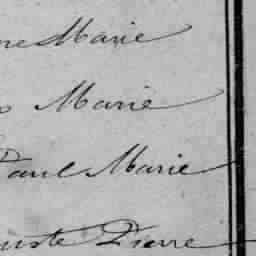 ne Marie
Marie
Paul Marie
uste Pierre